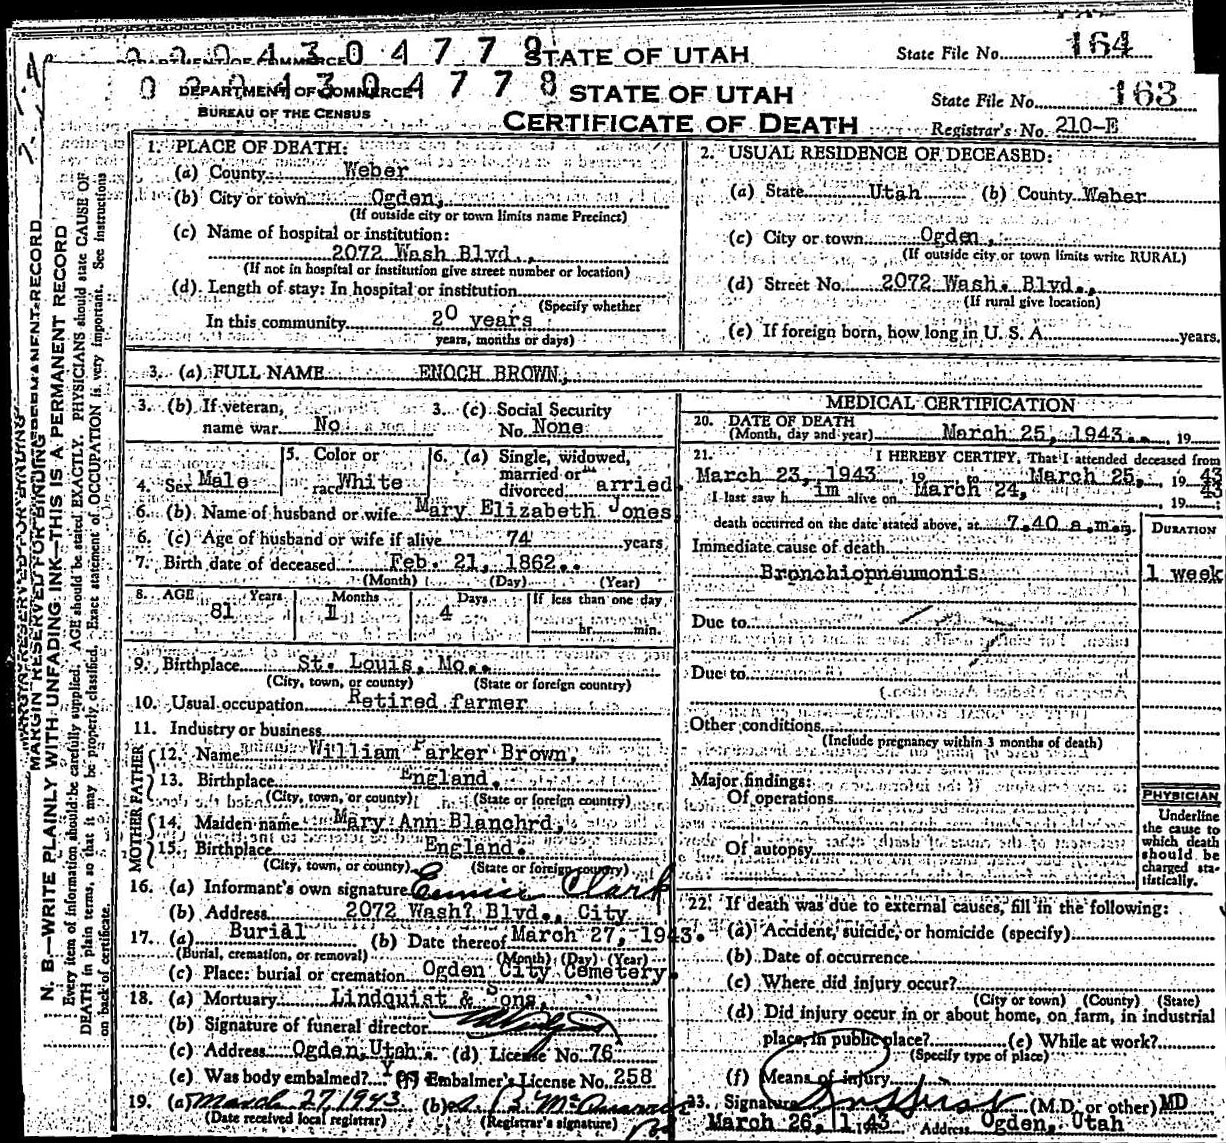 0 2 0 4 3 0 4 7 7 9 STATE OF UTAH State File No. 164
DEPARTMENT OF COMMERCE
0 2 0 4 3 0 4 7 7 8 STATE OF UTAH State File No. 163
DEPARTMENT OF COMMERCE
BUREAU OF THE CENSUS
CERTIFICATE OF DEATH Registrar's No. 210-E
MARGIN RESERVED FOR BINDING
N. B.—WRITE PLAINLY WITH UNFADING INK—THIS IS A PERMANENT RECORD
Every item of information should be carefully supplied. AGE should be stated EXACTLY. PHYSICIANS should state CAUSE OF
DEATH in plain terms, so that it may be properly classified. Exact statement of OCCUPATION is very important. See instructions
on back of certificate.
1. PLACE OF DEATH:
(a) County Weber
(b) City or town Ogden,
(If outside city or town limits name Precinct)
(c) Name of hospital or institution:
2072 Wash Blvd.,
(If not in hospital or institution give street number or location)
(d) Length of stay: In hospital or institution
(Specify whether
In this community 20 years
years, months or days)
2. USUAL RESIDENCE OF DECEASED:
(a) State Utah (b) County Weber
(c) City or town Ogden,
(If outside city or town limits write RURAL)
(d) Street No. 2072 Wash. Blvd.,
(If rural give location)
(e) If foreign born, how long in U. S. A. years.
3. (a) FULL NAME ENOCH BROWN,
3. (b) If veteran, name war No
3. (c) Social Security No. None
4. Sex Male
5. Color or race White
6. (a) Single, widowed, married or divorced arried
6. (b) Name of husband or wife Mary Elizabeth Jones
6. (c) Age of husband or wife if alive 74 years
7. Birth date of deceased Feb. 21, 1862..
(Month) (Day) (Year)
8. AGE Years Months Days If less than one day
81 1 4 hr. min.
9. Birthplace St. Louis, Mo..
(City, town, or county) (State or foreign country)
10. Usual occupation Retired farmer
11. Industry or business
FATHER
12. Name William Parker Brown,
13. Birthplace England.
(City, town, or county) (State or foreign country)
MOTHER
14. Maiden name Mary Ann Blanchrd,
15. Birthplace England.
(City, town, or county) (State or foreign country)
16. (a) Informant's own signature Eunice Clark
(b) Address 2072 Wash? Blvd., City
17. (a) Burial (b) Date thereof March 27, 1943.
(Burial, cremation, or removal) (Month) (Day) (Year)
(c) Place: burial or cremation Ogden City Cemetery.
18. (a) Mortuary Lindquist & Sons,
(b) Signature of funeral director
(c) Address Ogden, Utah. (d) License No. 76
(e) Was body embalmed? Yes (f) Embalmer's License No. 258
19. (a) March 27, 1943 (b)
(Date received local registrar) (Registrar's signature)
MEDICAL CERTIFICATION
20. DATE OF DEATH
(Month, day and year) March 25, 1943.. , 19
21. I HEREBY CERTIFY, That I attended deceased from
March 23, 1943 19 to March 25, 19 43
I last saw h im alive on March 24, 19 43
death occurred on the date stated above, at 7.40 a.m. m.
DURATION
Immediate cause of death
Bronchiopneumonis 1 week
Due to
Due to
Other conditions
(Include pregnancy within 3 months of death)
Major findings:
Of operations
Of autopsy
PHYSICIAN
Underline
the cause to
which death
should be
charged sta-
tistically.
22. If death was due to external causes, fill in the following:
(a) Accident, suicide, or homicide (specify)
(b) Date of occurrence
(c) Where did injury occur?
(City or town) (County) (State)
(d) Did injury occur in or about home, on farm, in industrial
place, in public place? (e) While at work?
(Specify type of place)
(f) Means of injury
23. Signature (M.D. or other) MD
March 26, 1943 Address Ogden, Utah